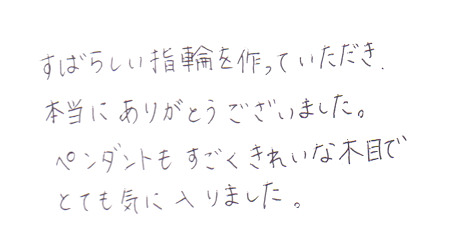 すばらしい指輪を作っていただき.
本当にありがとうございました。
ペンダントもすごくきれいな木目で
とても気に入りました。